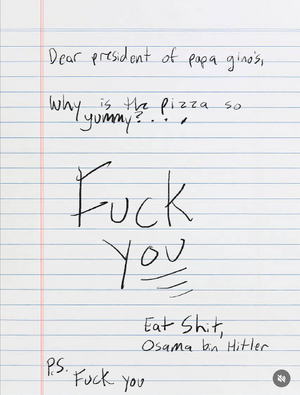 Dear president of papa gino's,
Why is the pizza so
yummy?...
Fuck
you
Eat Shit,
Osama bin Hitler
P.S.
Fuck you